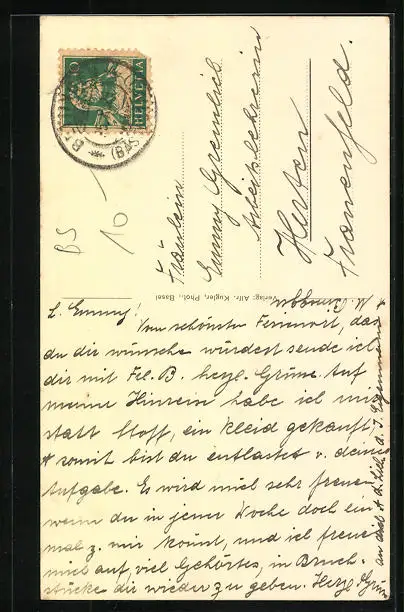 10
HELVETIA
BS
10
Fräulein
Emmy Greminlich
Arbeitslehrerin
Herten
Frauenfeld.
Verlag: Alfr. Kugler, Phot., Basel
L. Emmy!
Vom schönsten Ferienort, das
du dir wünschen würdest sende ich
dir mit Frl. B. herzl. Grüsse. Auf
meiner Hinreise habe ich mir
statt Stoff, ein Kleid gekauft,
somit bist du entlastet v. deiner
Aufgabe. Es wird mich sehr freuen
wenn du in jener Woche doch ein-
mal z. mir komst, und ich freue
mich auf, viel Gehörtes, in Bruch-
stücke dir wieder zu geben. Herzl. Grüsse
an dich & d. lieb.